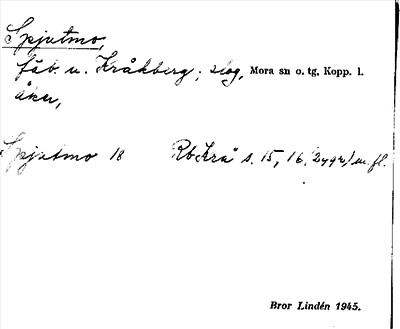 Spjutmo,
fäb. u. Kråkberg; slog, Mora sn o. tg, Kopp. l.
åker,
Spjutmo 18 Rb Krå s. 15, 16, m. fl.
Bror Lindén 1945.